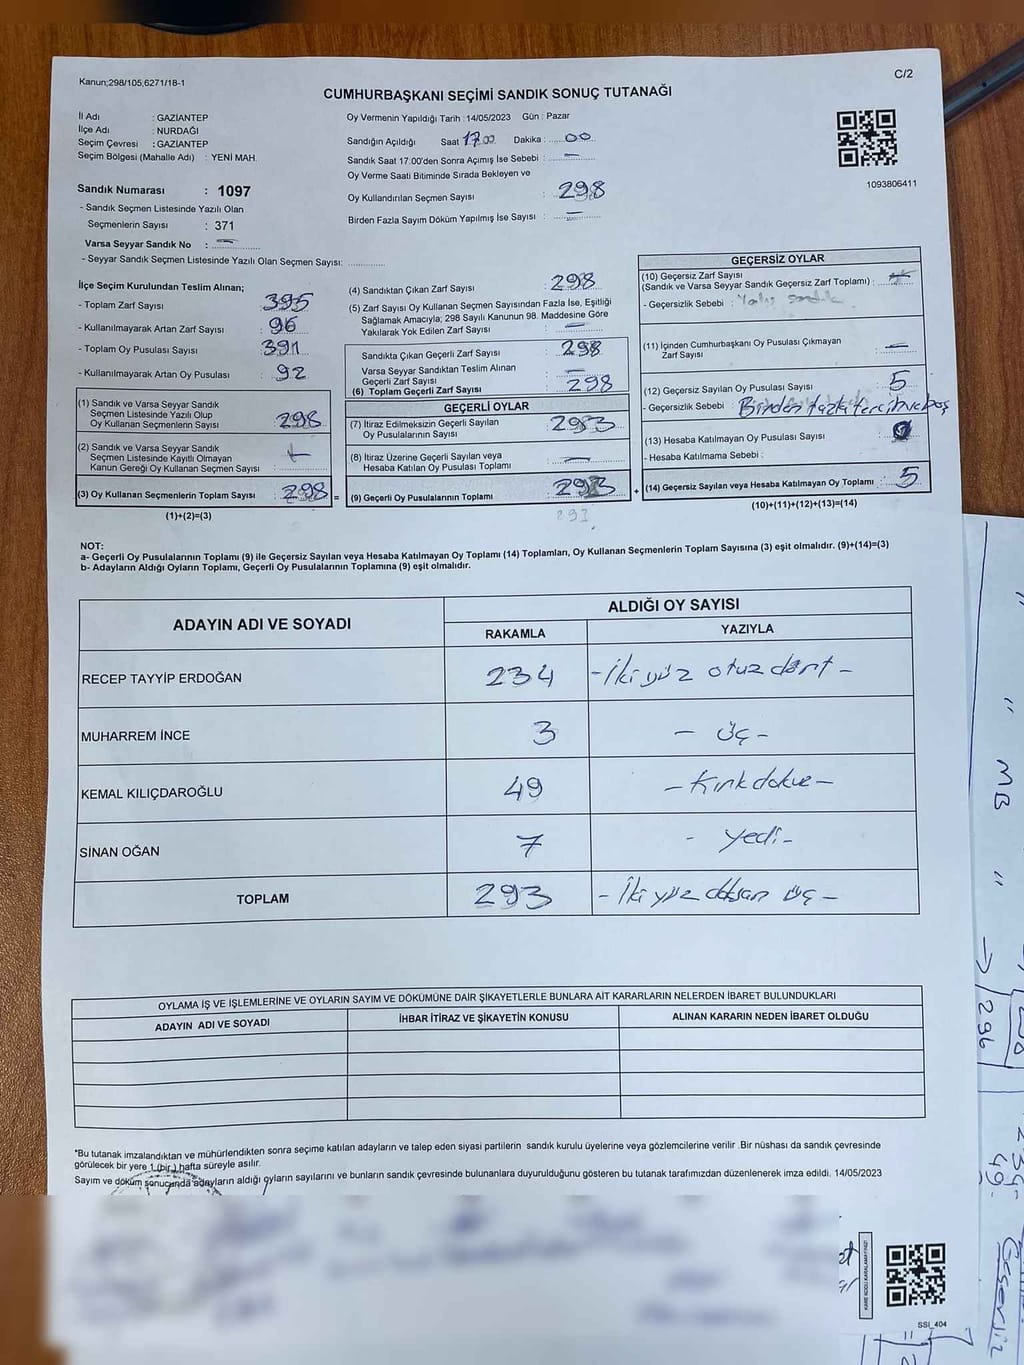 Kanun;298/105,6271/18-1
C/2
CUMHURBAŞKANI SEÇİMİ SANDIK SONUÇ TUTANAĞI
İl Adı : GAZİANTEP
İlçe Adı : NURDAĞI
Seçim Çevresi : GAZİANTEP
Seçim Bölgesi (Mahalle Adı) : YENİ MAH.
Sandık Numarası : 1097
- Sandık Seçmen Listesinde Yazılı Olan
Seçmenlerin Sayısı : 371
Varsa Seyyar Sandık No : —
- Seyyar Sandık Seçmen Listesinde Yazılı Olan Seçmen Sayısı:
Oy Vermenin Yapıldığı Tarih : 14/05/2023 Gün : Pazar
Sandığın Açıldığı Saat 17.00 Dakika : 00
Sandık Saat 17:00'den Sonra Açımış İse Sebebi : —
Oy Verme Saati Bitiminde Sırada Bekleyen ve
Oy Kullandırılan Seçmen Sayısı : 298
Birden Fazla Sayım Döküm Yapılmış İse Sayısı : —
1093806411
İlçe Seçim Kurulundan Teslim Alınan;
- Toplam Zarf Sayısı : 395
- Kullanılmayarak Artan Zarf Sayısı : 96
- Toplam Oy Pusulası Sayısı : 391
- Kullanılmayarak Artan Oy Pusulası : 92
(1) Sandık ve Varsa Seyyar Sandık
Seçmen Listesinde Yazılı Olup
Oy Kullanan Seçmenlerin Sayısı : 298
(2) Sandık ve Varsa Seyyar Sandık
Seçmen Listesinde Kayıtlı Olmayan
Kanun Gereği Oy Kullanan Seçmen Sayısı :
(3) Oy Kullanan Seçmenlerin Toplam Sayısı : 298 =
(1)+(2)=(3)
(4) Sandıktan Çıkan Zarf Sayısı : 298
(5) Zarf Sayısı Oy Kullanan Seçmen Sayısından Fazla İse, Eşitliği
Sağlamak Amacıyla; 298 Sayılı Kanunun 98. Maddesine Göre
Yakılarak Yok Edilen Zarf Sayısı : —
Sandıkta Çıkan Geçerli Zarf Sayısı : 298
Varsa Seyyar Sandıktan Teslim Alınan
Geçerli Zarf Sayısı : —
(6) Toplam Geçerli Zarf Sayısı : 298
GEÇERLİ OYLAR
(7) İtiraz Edilmeksizin Geçerli Sayılan
Oy Pusulalarının Sayısı : 293
(8) İtiraz Üzerine Geçerli Sayılan veya
Hesaba Katılan Oy Pusulası Toplamı : —
(9) Geçerli Oy Pusulalarının Toplamı : 293 +
293
GEÇERSİZ OYLAR
(10) Geçersiz Zarf Sayısı
(Sandık ve Varsa Seyyar Sandık Geçersiz Zarf Toplamı) :
- Geçersizlik Sebebi :
(11) İçinden Cumhurbaşkanı Oy Pusulası Çıkmayan
Zarf Sayısı : —
(12) Geçersiz Sayılan Oy Pusulası Sayısı : 5
- Geçersizlik Sebebi : Birden fazla tercih
(13) Hesaba Katılmayan Oy Pusulası Sayısı :
- Hesaba Katılmama Sebebi :
(14) Geçersiz Sayılan veya Hesaba Katılmayan Oy Toplamı : 5
(10)+(11)+(12)+(13)=(14)
NOT:
a- Geçerli Oy Pusulalarının Toplamı (9) ile Geçersiz Sayılan veya Hesaba Katılmayan Oy Toplamı (14) Toplamları, Oy Kullanan Seçmenlerin Toplam Sayısına (3) eşit olmalıdır. (9)+(14)=(3)
b- Adayların Aldığı Oyların Toplamı, Geçerli Oy Pusulalarının Toplamına (9) eşit olmalıdır.
ADAYIN ADI VE SOYADI
ALDIĞI OY SAYISI
RAKAMLA YAZIYLA
RECEP TAYYİP ERDOĞAN 234 -İki yüz otuz dört-
MUHARREM İNCE 3 - üç-
KEMAL KILIÇDAROĞLU 49 -Kırk dokuz-
SİNAN OĞAN 7 - yedi-
TOPLAM 293 -İki yüz doksan üç-
OYLAMA İŞ VE İŞLEMLERİNE VE OYLARIN SAYIM VE DÖKÜMÜNE DAİR ŞİKAYETLERLE BUNLARA AİT KARARLARIN NELERDEN İBARET BULUNDUKLARI
ADAYIN ADI VE SOYADI İHBAR İTİRAZ VE ŞİKAYETİN KONUSU ALINAN KARARIN NEDEN İBARET OLDUĞU
*Bu tutanak imzalandıktan ve mühürlendikten sonra seçime katılan adayların ve talep eden siyasi partilerin sandık kurulu üyelerine veya gözlemcilerine verilir .Bir nüshası da sandık çevresinde
görülecek bir yere 1 (bir ) hafta süreyle asılır.
Sayım ve döküm sonucunda adayların aldığı oyların sayılarını ve bunların sandık çevresinde bulunanlara duyurulduğunu gösteren bu tutanak tarafımızdan düzenlenerek imza edildi. 14/05/2023
KARE KODU KARALAMAYINIZ!
SSI_404
" MB "
296
234-
49-
Geçersiz